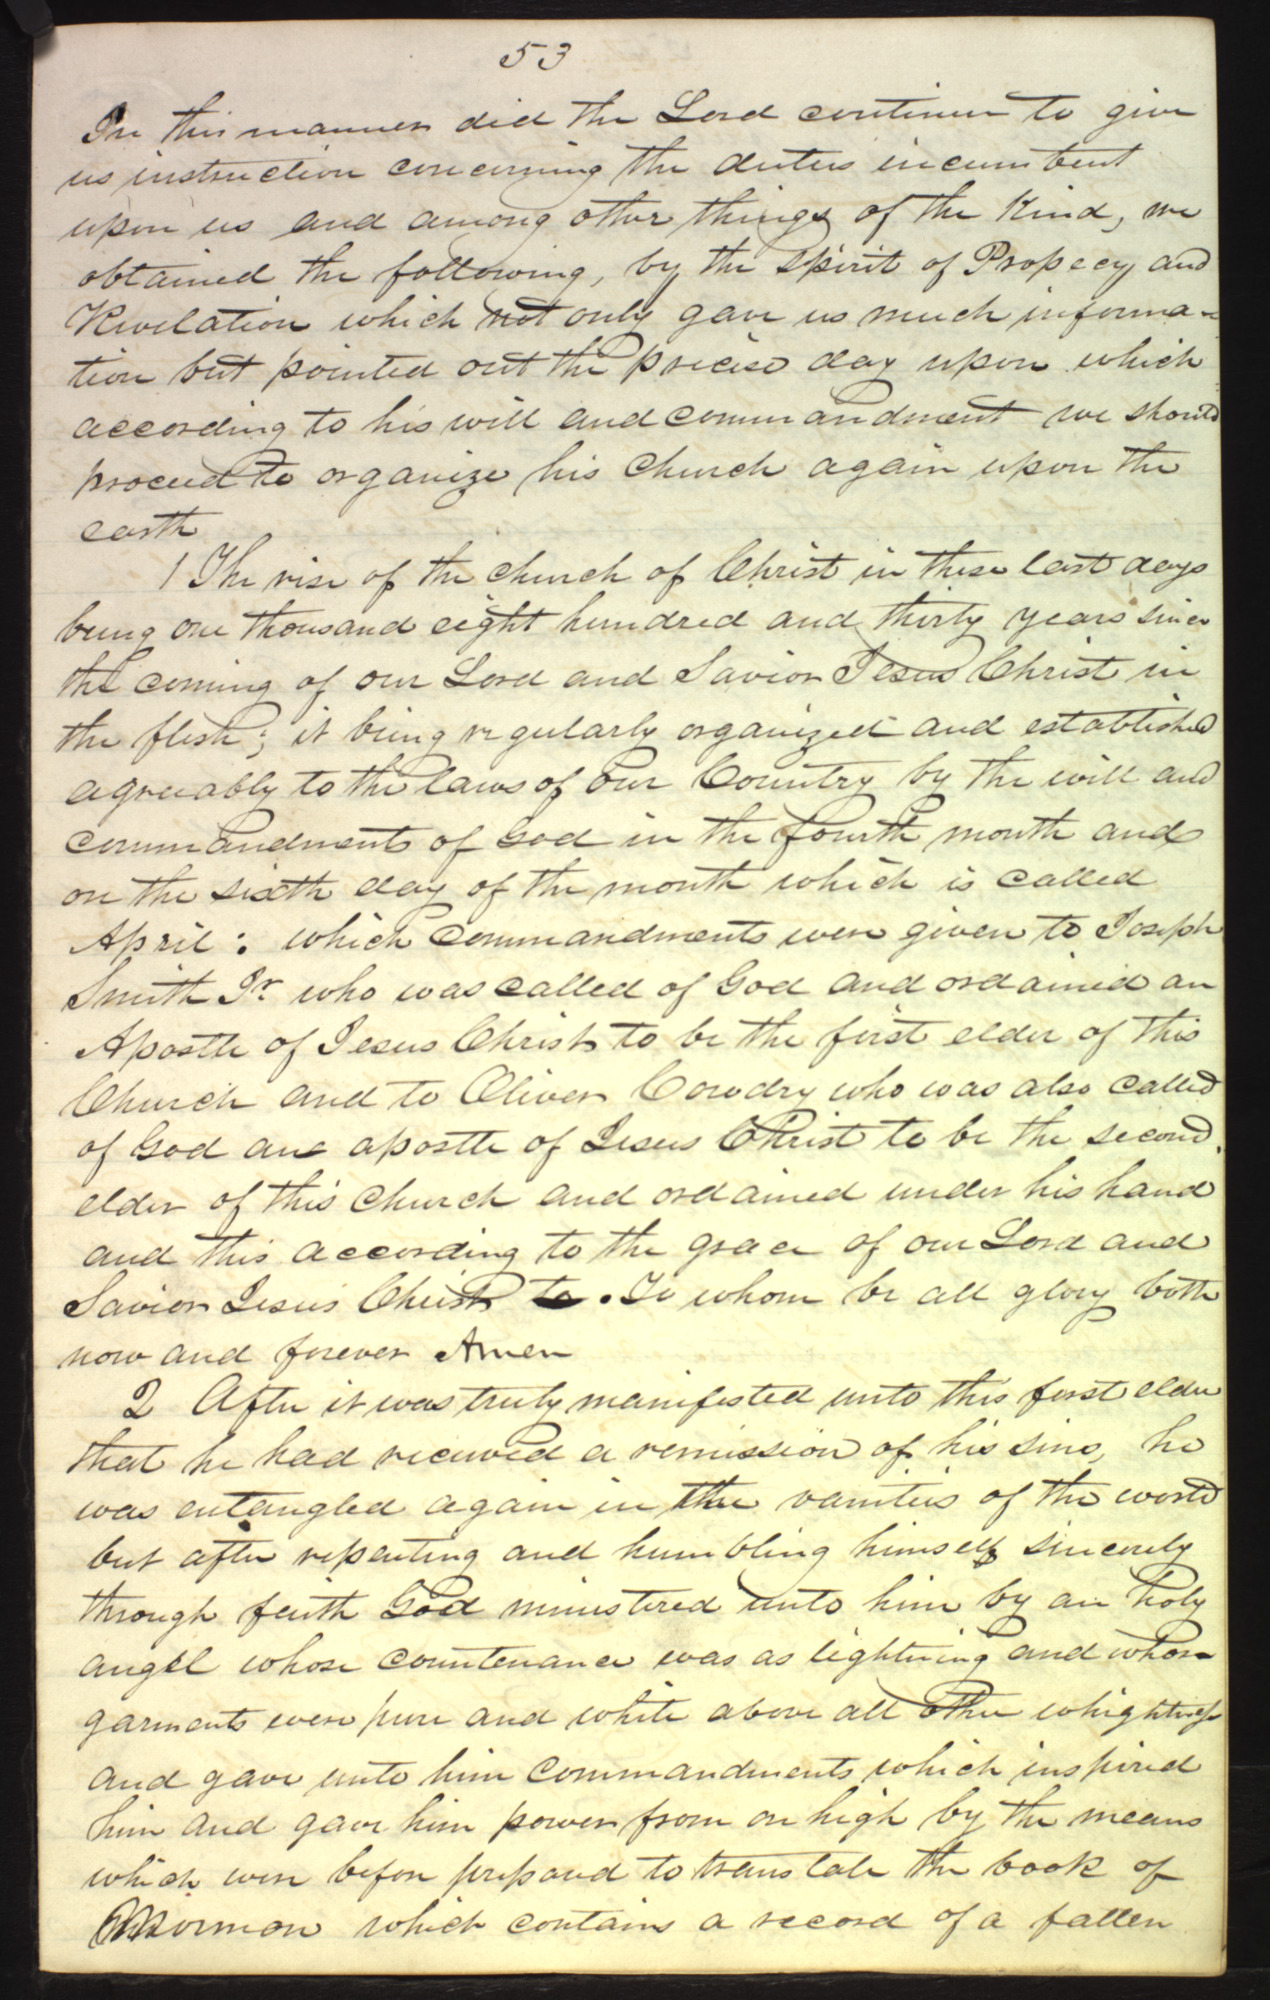 53
In this manner did the Lord continue to give
us instruction concerning the duties incumbent
upon us and among other things of the Kind, we
obtained the following, by the spirit of Propecy and
Revelation which not only gave us much informa-
tion but pointed out the precise day upon which
according to his will and commandment we should
proceed to organize his Church again upon the
earth
1 The rise of the church of Christ in these last days
being one thousand eight hundred and thirty years since
the coming of our Lord and Savior Jesus Christ in
the flesh; it being regularly organized and established
agreeably to the laws of our Country by the will and
commandments of God in the fourth month and
on the sixth day of the month which is called
April: which commandments were given to Joseph
Smith Jr. who was called of God and ordained an
Apostle of Jesus Christ to be the first elder of this
Church and to Oliver Cowdry who was also called
of God an apostle of Jesus Christ to be the second
elder of this Church and ordained under his hand
and this according to the grace of our Lord and
Savior Jesus Christ to. To whom be all glory both
now and forever Amen
2 After it was truly manifested unto this first elder
that he had received a remission of his sins, he
was entangled again in the vanities of the world
but after repenting and humbling himself sincerely
through faith God ministered unto him by an holy
angel whose countenance was as lightning and whose
garments were pure and white above all other whightness
and gave unto him commandments which inspired
him and gave him power from on high by the means
which were before prepared to translate the book of
Mormon which contains a record of a fallen